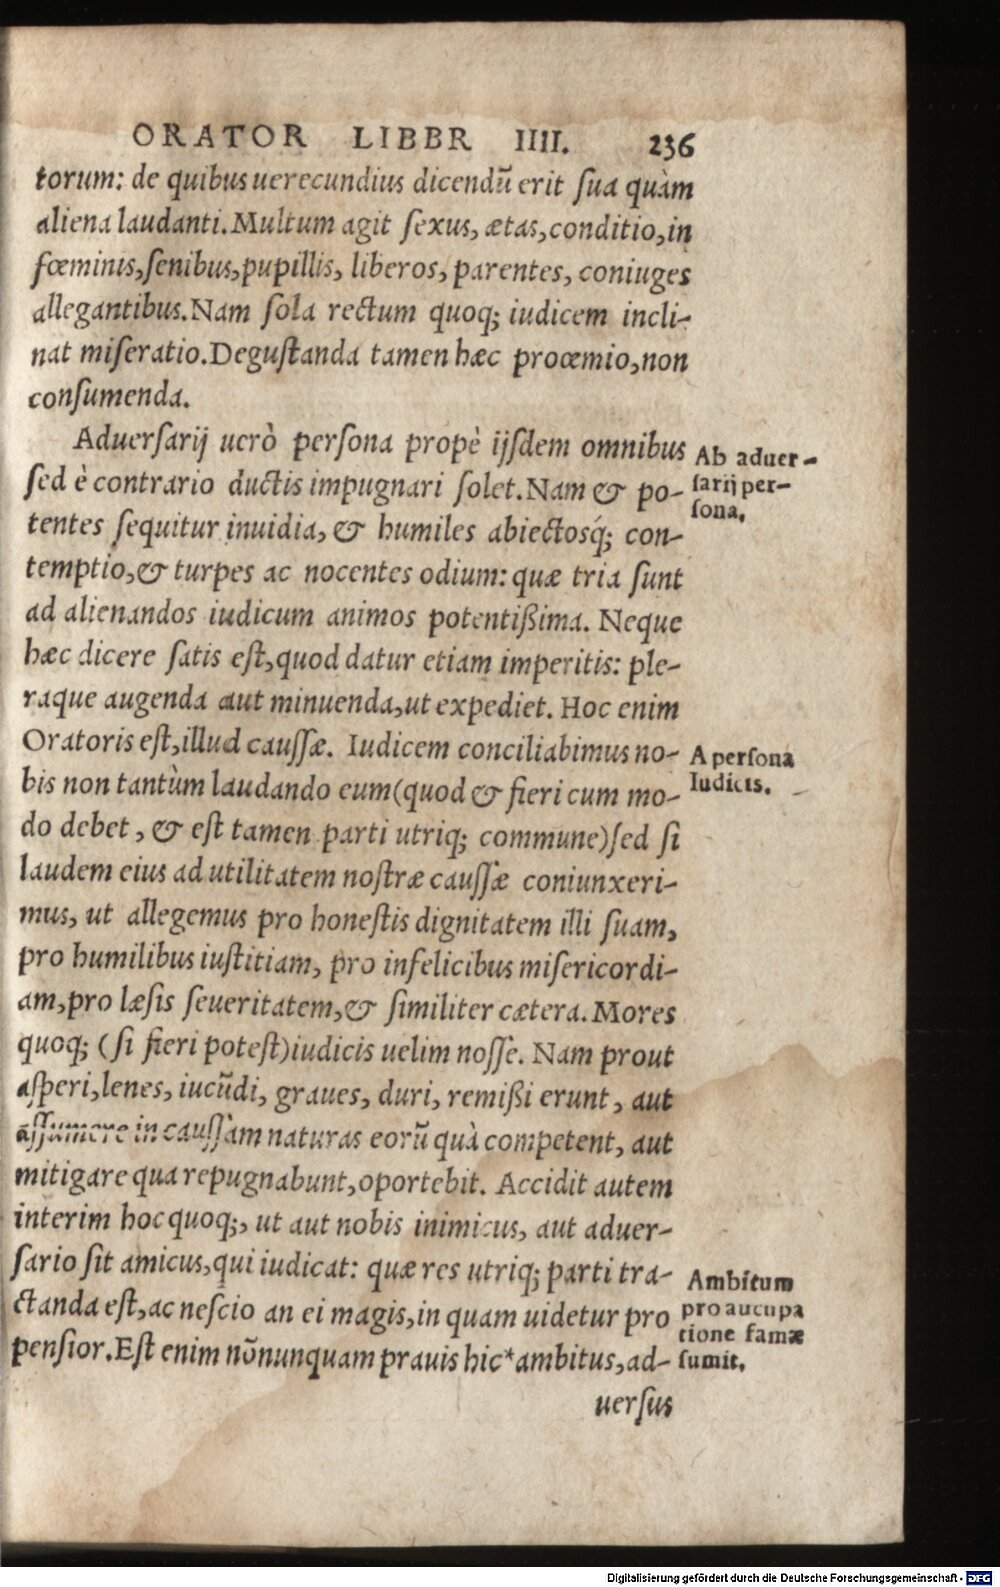 ORATOR LIBBR IIII. 236
torum: de quibus uerecundius dicendũ erit ſua quàm
aliena laudanti. Multum agit ſexus, ætas, conditio, in
fœminis, ſenibus, pupillis, liberos, parentes, coniuges
allegantibus. Nam ſola rectum quoq; iudicem incli-
nat miſeratio. Deguſtanda tamen hæc proœmio, non
conſumenda.
Aduerſarij uerò perſona propè ijſdem omnibus
ſed è contrario ductis impugnari ſolet. Nam & po-
tentes ſequitur inuidia, & humiles abiectosq́; con-
temptio, & turpes ac nocentes odium: quæ tria ſunt
ad alienandos iudicum animos potentißima. Neque
hæc dicere ſatis eſt, quod datur etiam imperitis: ple-
raque augenda aut minuenda, ut expediet. Hoc enim
Oratoris eſt, illud cauſſæ. Iudicem conciliabimus no-
bis non tantùm laudando eum (quod & fieri cum mo-
do debet, & eſt tamen parti utriq; commune) ſed ſi
laudem eius ad utilitatem noſtræ cauſſæ coniunxeri-
mus, ut allegemus pro honeſtis dignitatem illi ſuam,
pro humilibus iuſtitiam, pro infelicibus miſericordi-
am, pro læſis ſeueritatem, & ſimiliter cætera. Mores
quoq; (ſi fieri poteſt) iudicis uelim noſſe. Nam prout
aſperi, lenes, iucũdi, graues, duri, remißi erunt, aut
aſſumere in cauſſàm naturas eorũ quà competent, aut
mitigare qua repugnabunt, oportebit. Accidit autem
interim hoc quoq;, ut aut nobis inimicus, aut aduer-
ſario ſit amicus, qui iudicat: quæ res utriq; parti tra-
ctanda eſt, ac neſcio an ei magis, in quam uidetur pro
penſior. Eſt enim nõnunquam prauis hic* ambitus, ad-
uerſus
Ab aduer-
ſarij per-
ſona.
A perſona
Iudicis.
Ambitum
pro aucupa
tione famæ
ſumit.
Digitalisierung gefördert durch die Deutsche Forschungsgemeinschaft - DFG